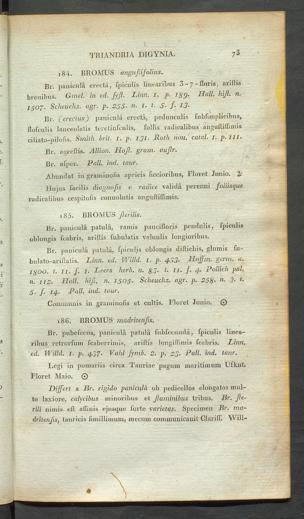 TRIANDRIA DIGYNIA. 73
184. BROMUS angustifolius.
Br. paniculâ erectâ, spiculis linearibus 3-7-floris, aristis
brevibus. Gmel. in ed. syst. Linn. 1. p. 189. Hall. hist. n.
1507. Scheuchz. agr. p. 255. n. 1. t. 5. f. 13.
Br. (erectus) paniculâ erectâ, pedunculis subsimplicibus,
flosculis lanceolatis teretiusculis, foliis radicalibus angustissimis
ciliato-pilosis. Smith brit. 1. p. 131. Roth nov. catal. 1. p. 111.
Br. agrestis. Allion. Host. gram. austr.
Br. asper. Pall. ind. taur.
Abundat in graminosis apricis siccioribus, Floret Junio. ♃
Hujus facilis diagnosis e radice validâ perenni foliisque
radicalibus cespitosis convolutis angustissimis.
185. BROMUS sterilis.
Br. paniculâ patulâ, ramis paucifloris pendulis, spiculis
oblongis scabris, aristis subulatis valvulis longioribus.
Br. paniculâ patulâ, spiculis oblongis distichis, glumis su-
bulato-aristatis. Linn. ed. Willd. 1. p. 433. Hoffm. germ. a.
1800. t. 11. f. 1. Leers herb. n. 85. t. 11. f. 4. Pollich pal.
n. 112. Hall. hist. n. 1505. Scheuchz. agr. p. 258. n. 3. t.
5. f. 14. Pall. ind. taur.
Communis in graminosis et cultis. Floret Junio. ⊙
186. BROMUS madritensis.
Br. pubescens, paniculâ patulâ subsecundâ, spiculis linea-
ribus retrorsum scaberrimis, aristis longissimis scabris. Linn.
ed. Willd. 1. p. 437. Vahl symb. 2. p. 23. Pall. ind. taur.
Legi in pomariis circa Tauriae pagum maritimum Uskut.
Floret Maio. ⊙
Differt a Br. rigido paniculâ ob pedicellos elongatos mul-
to laxiore, calycibus minoribus et staminibus tribus. Br. ste-
rili nimis est affinis ejusque forte varietas. Specimen Br. ma-
dritensis, tauricis simillimum, mecum communicavit Clariss. Will-